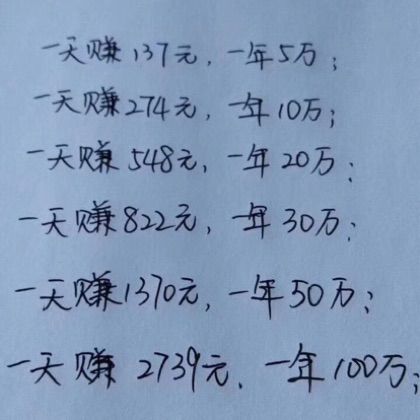 一天赚137元,一年5万;
一天赚274元,一年10万;
一天赚548元,一年20万;
一天赚822元,一年30万;
一天赚1370元,一年50万;
一天赚2739元,一年100万;